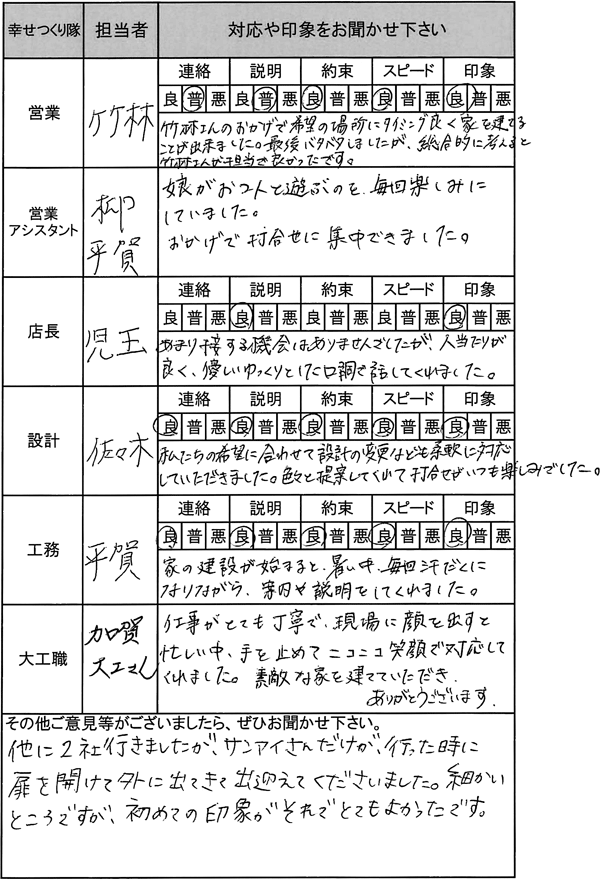 幸せつくり隊 担当者 対応や印象をお聞かせ下さい
営業 竹林
連絡 説明 約束 スピード 印象
良 普 悪 良 普 悪 良 普 悪 良 普 悪 良 普 悪
竹林さんのおかげで希望の場所にタイミング良く家を建てる
ことが出来ました。最後バタバタしましたが、総合的に考えると
竹林さんが担当で良かったです。
営業
アシスタント
柳
平賀
娘がおコトと遊ぶのを、毎回楽しみに
していました。
おかげで打合せに集中できました。
店長 児玉
連絡 説明 約束 スピード 印象
良 普 悪 良 普 悪 良 普 悪 良 普 悪 良 普 悪
あまり接する機会はありませんでしたが、人当たりが
良く、優しいゆっくりとした口調で話してくれました。
設計 佐々木
連絡 説明 約束 スピード 印象
良 普 悪 良 普 悪 良 普 悪 良 普 悪 良 普 悪
私たちの希望に合わせて設計の変更なども柔軟に対応
していただきました。色々と提案してくれて打合せがいつも楽しみでした。
工務 平賀
連絡 説明 約束 スピード 印象
良 普 悪 良 普 悪 良 普 悪 良 普 悪 良 普 悪
家の建設が始まると、暑い中、毎回汗だくに
なりながら、案内や説明をしてくれました。
大工職
加賀
大工さん
仕事がとても丁寧で、現場に顔を出すと
忙しい中、手を止めてニコニコ笑顔で対応して
くれました。素敵な家を建てていただき、
ありがとうございます。
その他ご意見等がございましたら、ぜひお聞かせ下さい。
他に2社行きましたが、サンアイさんだけが、行った時に
扉を開けて外に出てきて出迎えてくださいました。細かい
ところですが、初めての印象がそれでとてもよかったです。